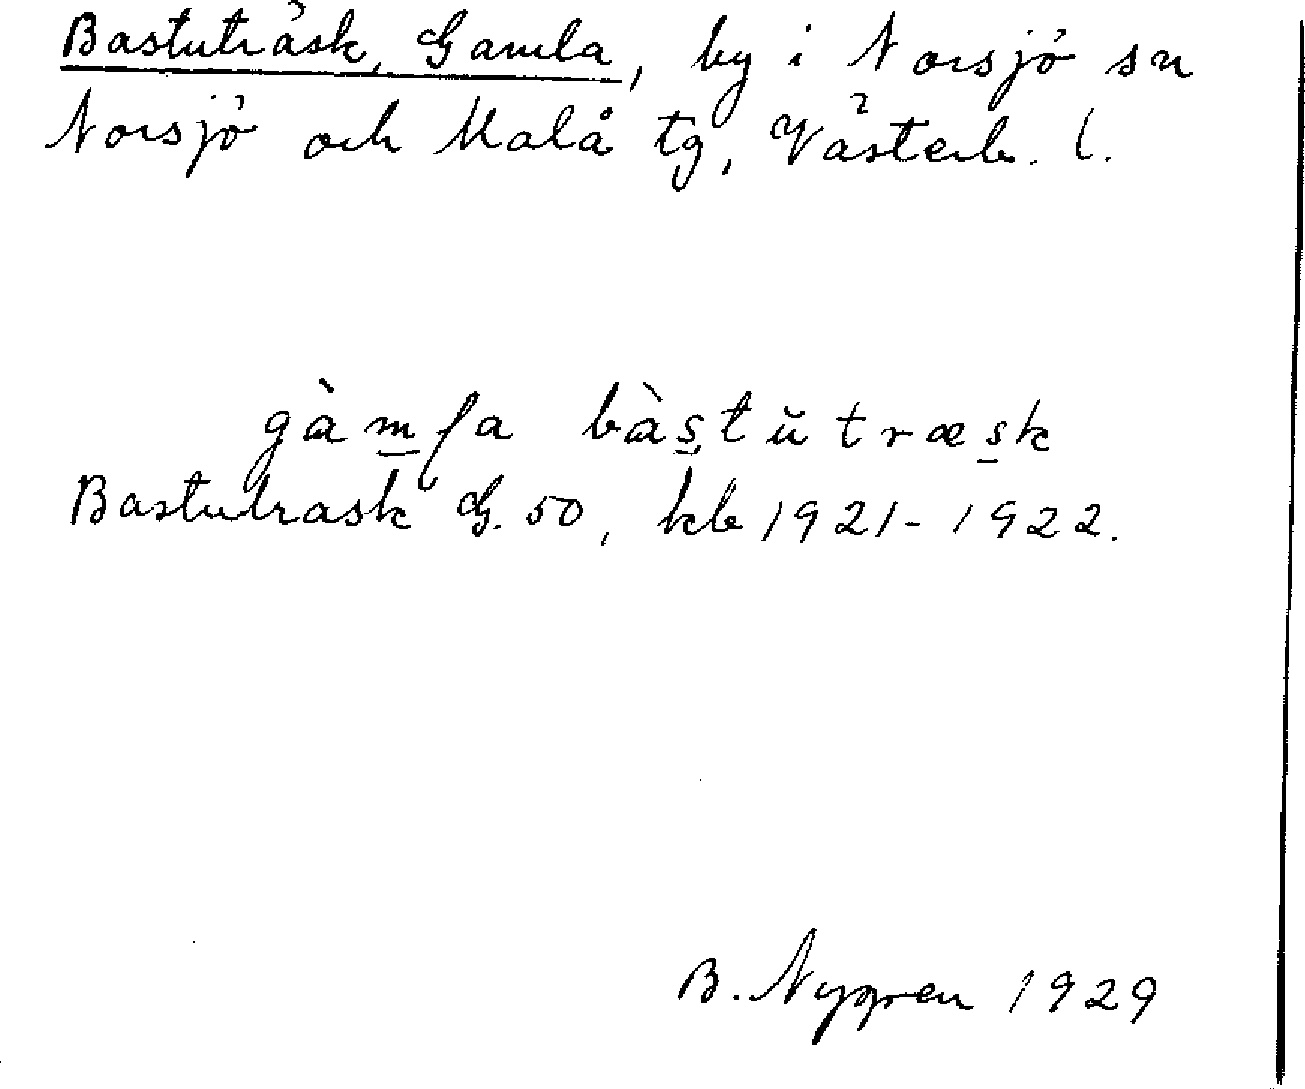 Bastuträsk, Gamla, by i Norsjö sn
Norsjö och Malå tg, Västerb. l.
gàm̲ɭa bàs̲tŭtræs̲k
Bastutrask G. 50, kb 1921-1922.
B. Nygren 1929